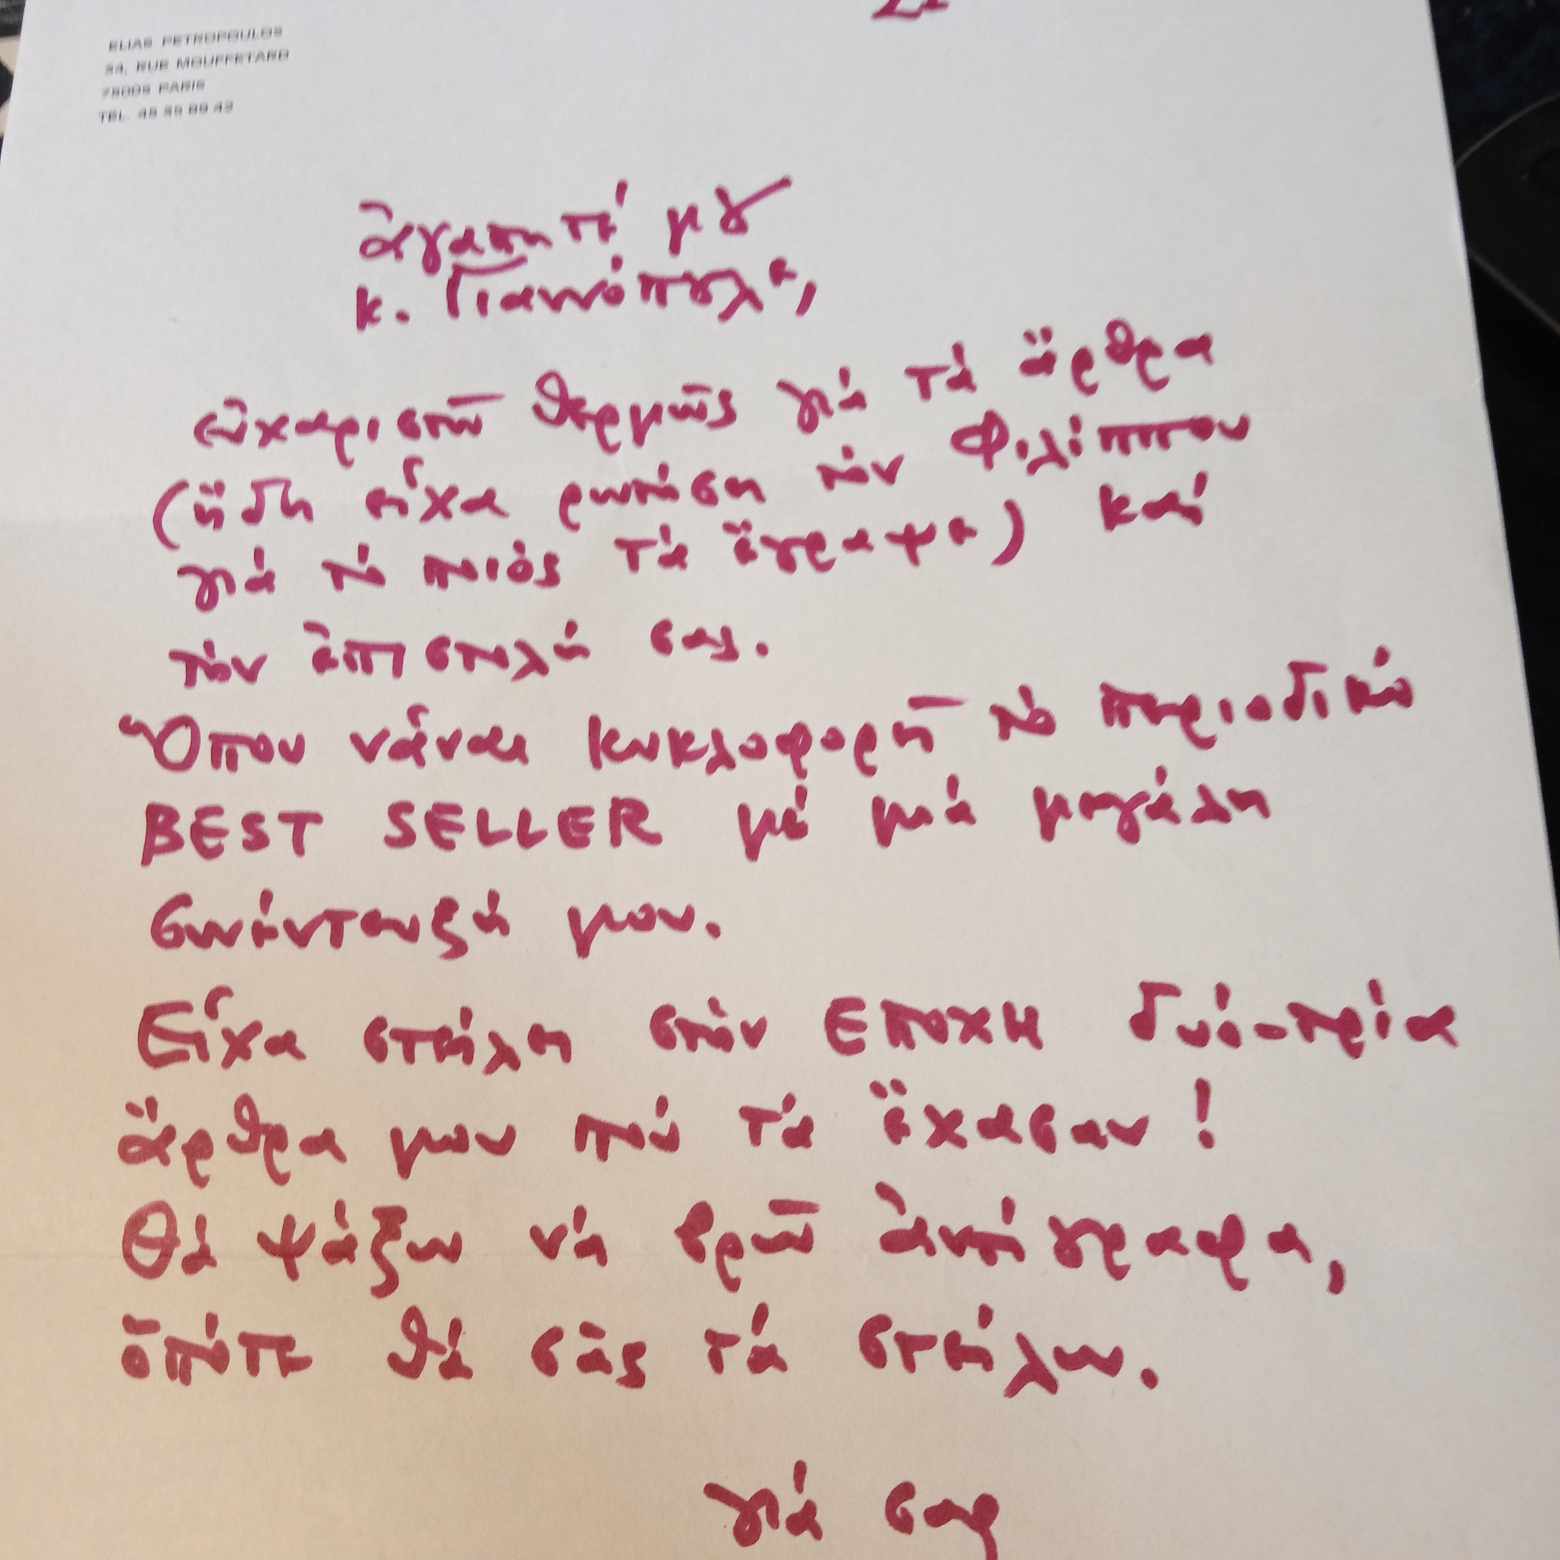 ELIAS PETROPOULOS
34, RUE MOUFFETARD
75005 PARIS
TEL.
ἀγαπητέ μȣ
κ. Γιαννόπȣλε,
εὐχαριστῶ θερμῶς γιά τά ἄρθρα
(ἤδη εἶχα ρωτήση τόν Φιλίππου
γιά τό ποιός τά ἔγραψε) καί
τήν ἐπιστολή σας.
Ὅπου νἆναι κυκλοφορῆ τό περιοδικό
BEST SELLER μέ μιά μεγάλη
συνέντευξή μου.
Εἶχα στείλει στήν ΕΠΟΧΗ δυό-τρία
ἄρθρα μου πού τά ἔχασαν!
Θά ψάξω νά βρῶ ἀντίγραφα,
ὁπότε θά σᾶς τά στείλω.
γιά σας